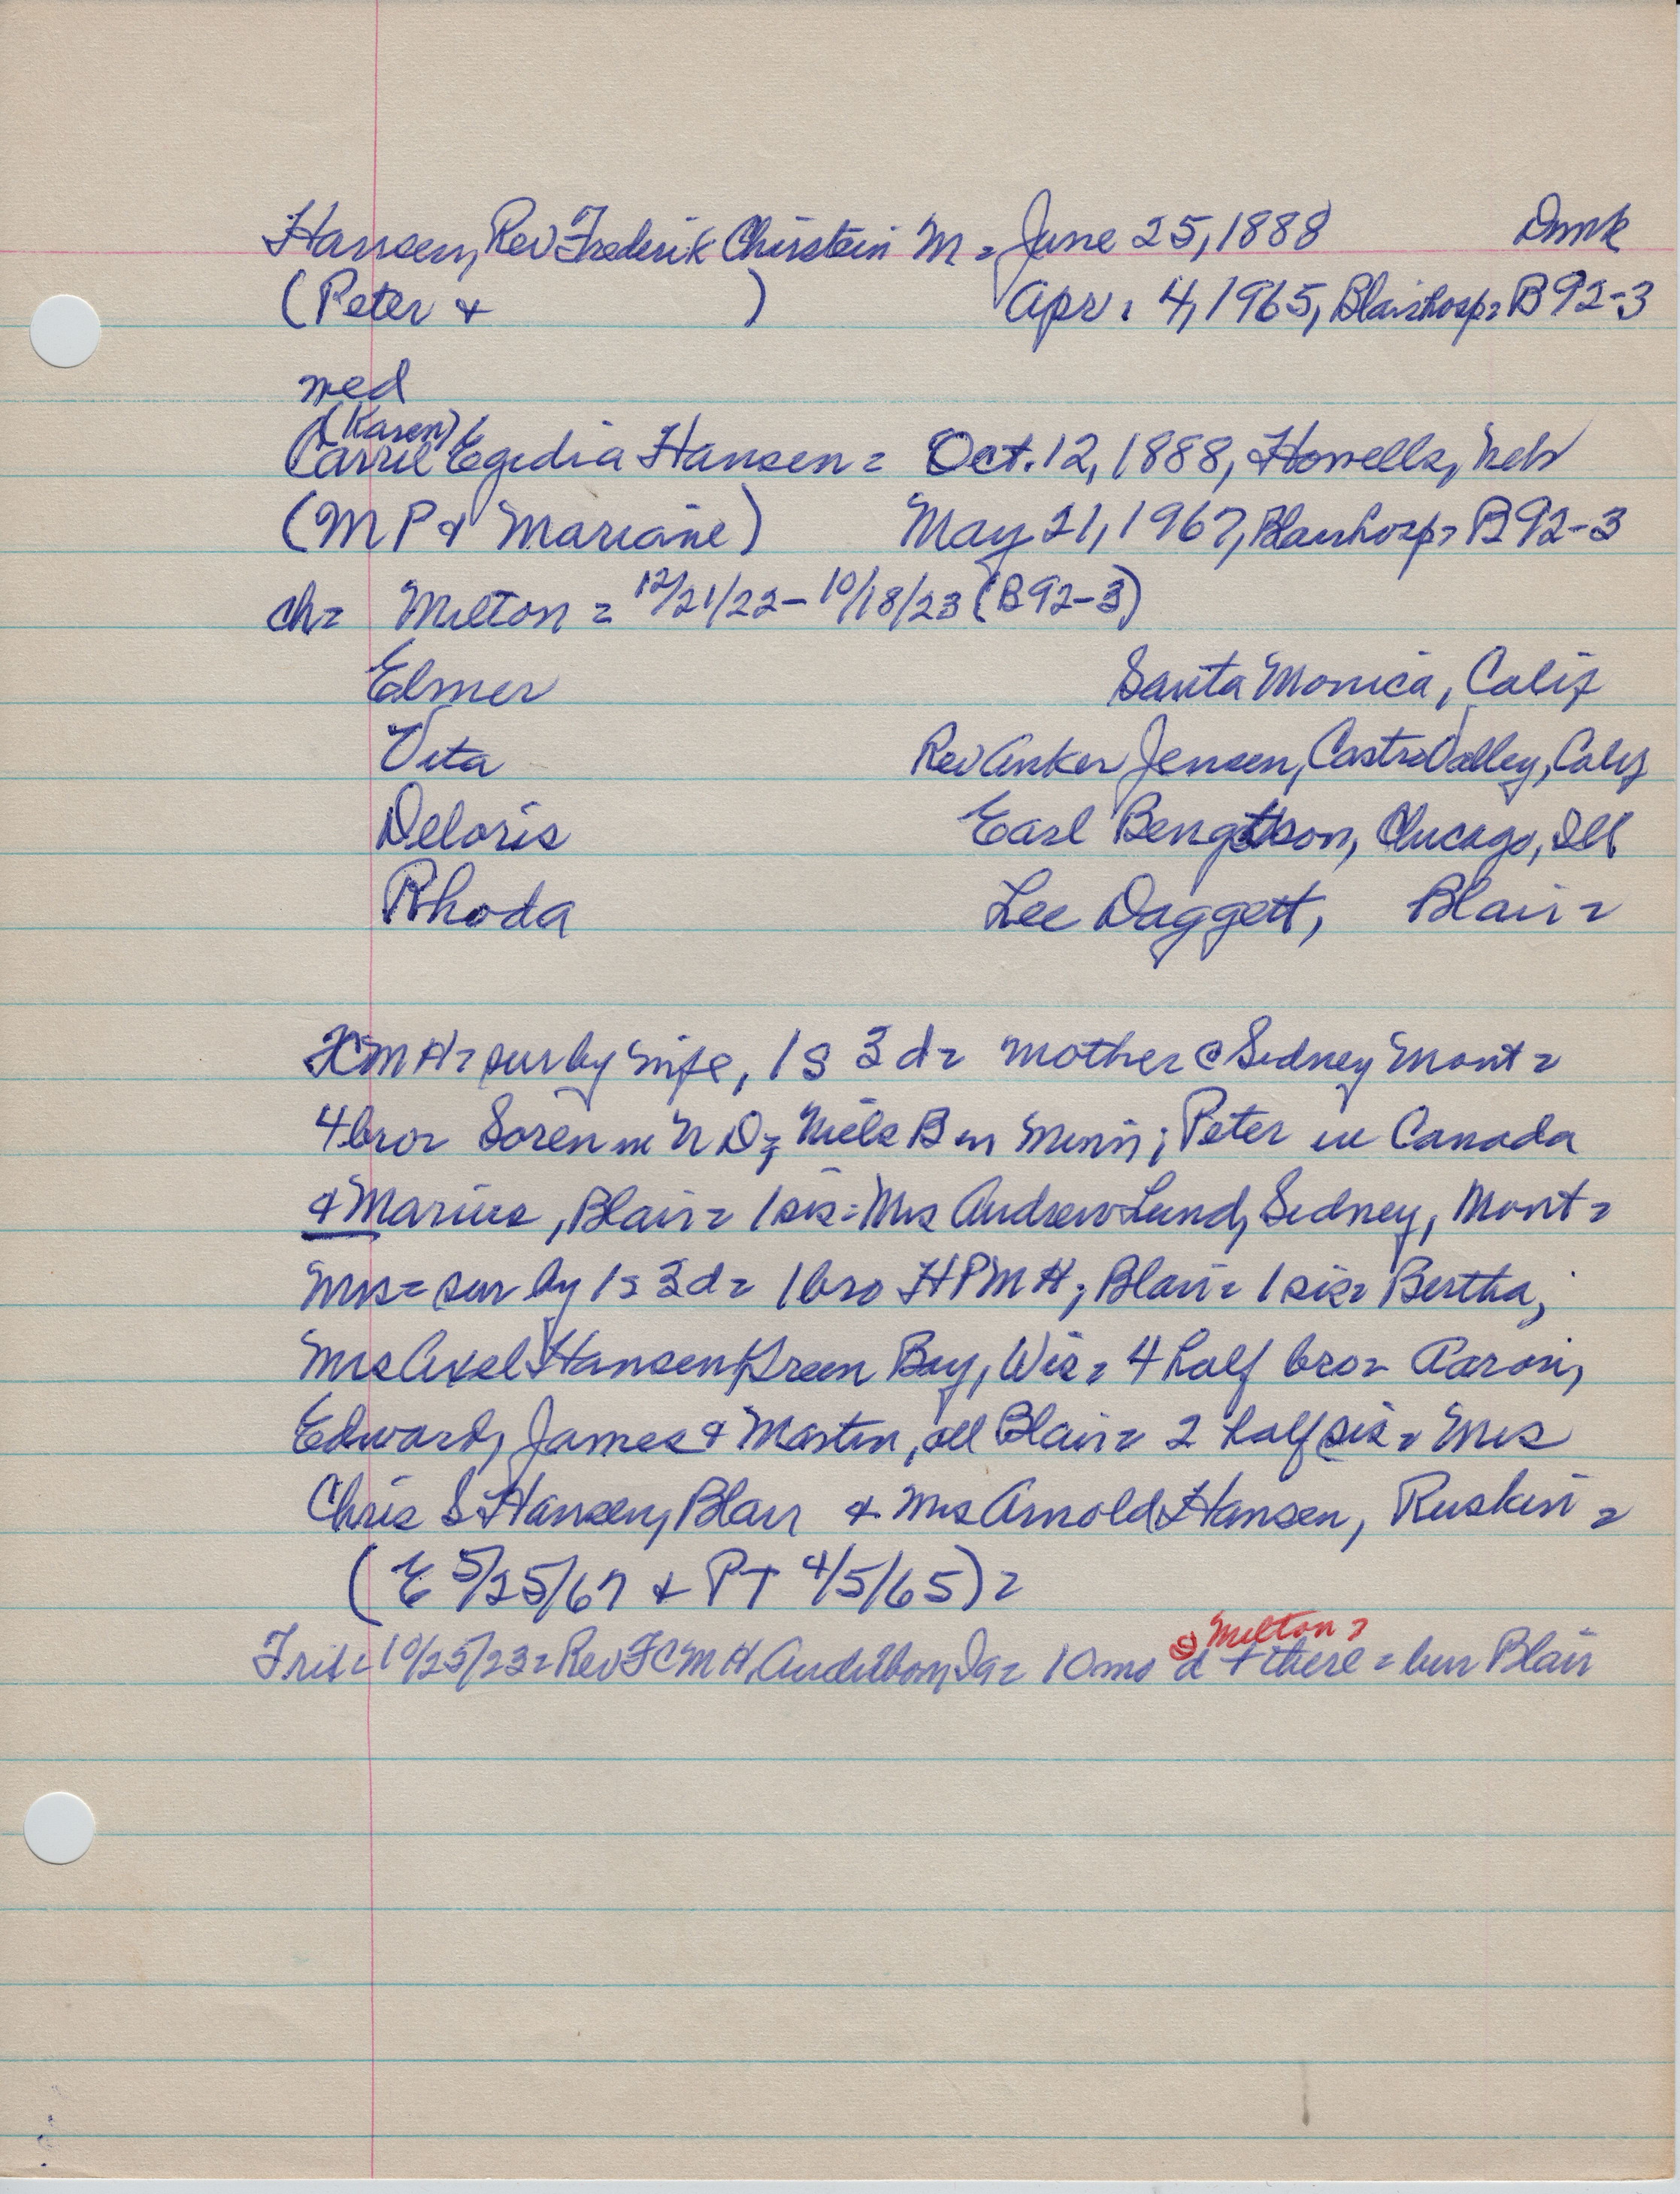 Hansen, Rev Frederik Chirstein M = June 25, 1888 Dmk
(Peter + ) Apr. 4, 1965, Blair hosp = B 92-3
med
(Karen)
Carrie Egedia Hansen = Oct. 12, 1888, Howells, Neb
(M P + Mariane) May 21, 1967, Blair hosp = B 92-3
ch = Milton = 12/21/22 - 10/18/23 (B 92-3)
Elmer Santa Monica, Calif
Vita Rev Anker Jensen, Castro Valley, Calif
Deloris Earl Bengtson, Chicago, Ill
Rhoda Lee Daggett, Blair =
FCMH = sur by wife, 1 s 3 d = mother @ Sidney Mont =
4 bro = Soren in N D; Niels B in Minn; Peter in Canada
+ Marius, Blair = 1 sis = Mrs Andrew Lund, Sidney, Mont =
Mrs = sur by 1 s 3 d = 1 bro H P M H; Blair = 1 sis = Bertha,
Mrs Axel Hansen Green Bay, Wis = 4 half bro = Aaron,
Edward, James + Martin, all Blair = 2 half sis = Mrs
Chris S Hansen, Blair + Mrs Arnold Hansen, Ruskin =
(E 5/25/67 + P T 4/5/65) =
Milton =
Tri = 10/25/23 = Rev FCMH, Audubon, Ia = 10 mo d + there = bur Blair